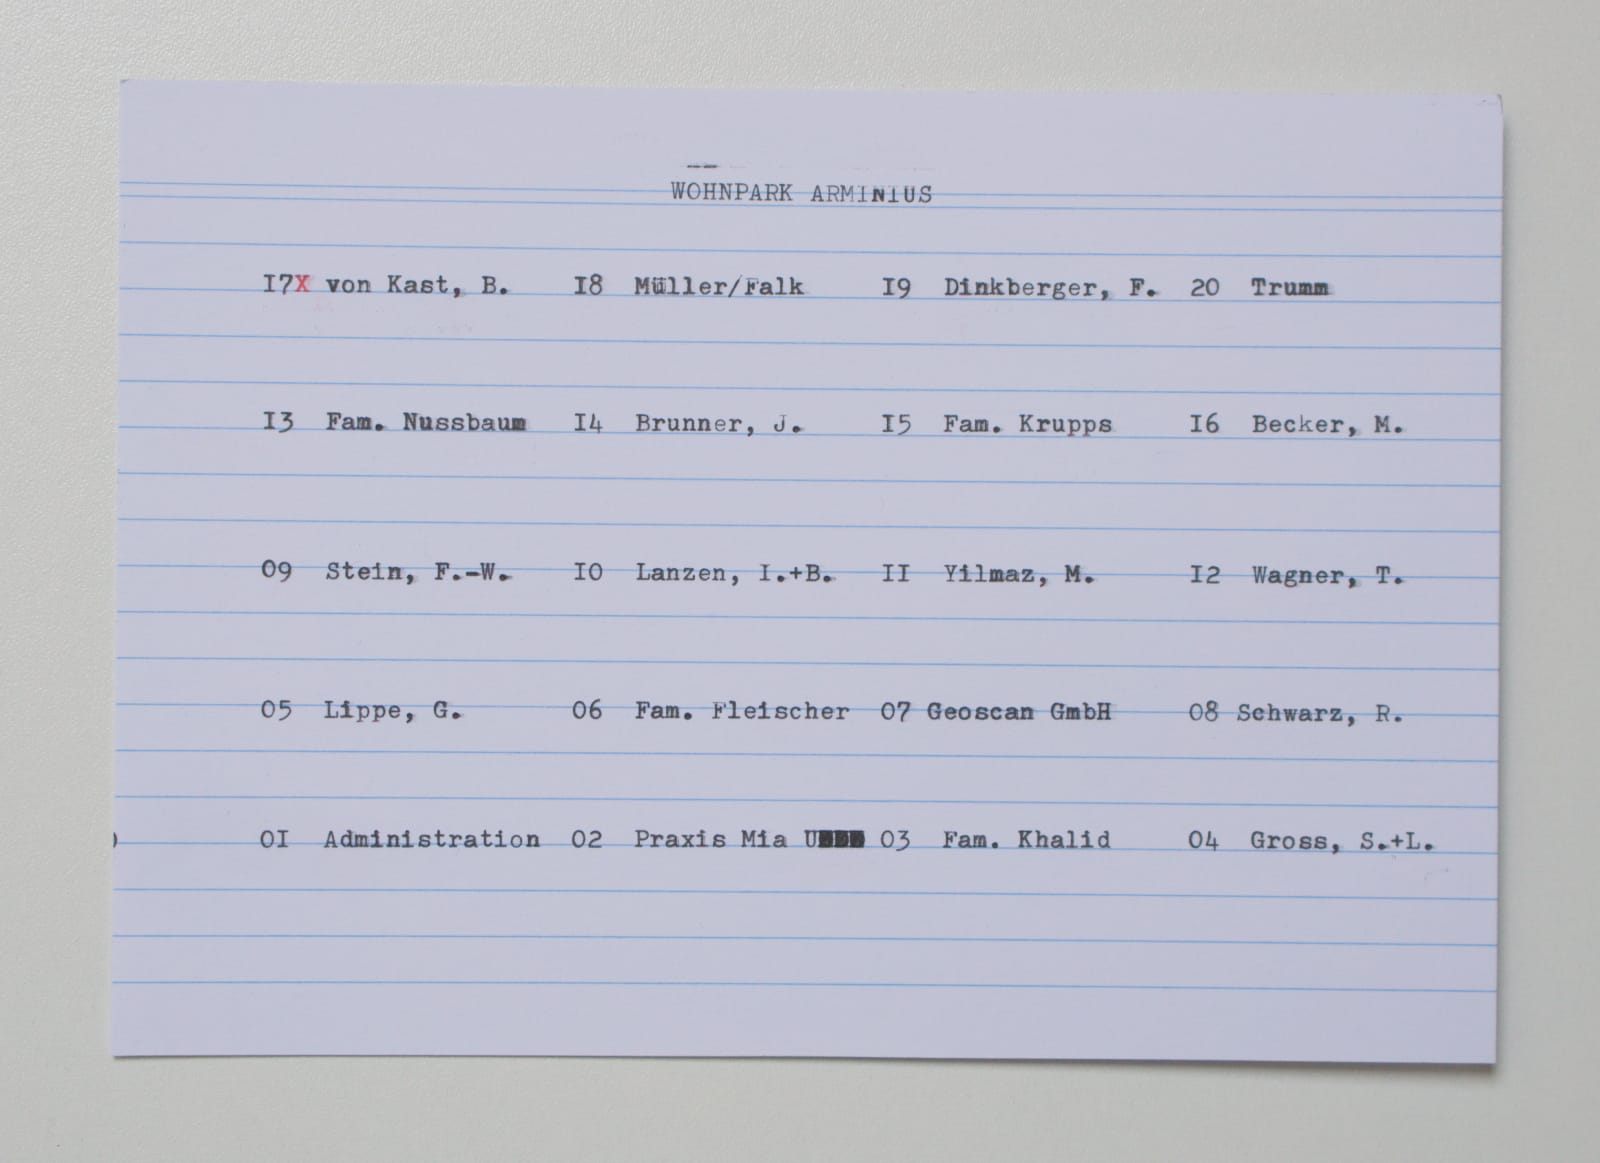 WOHNPARK ARMINIUS
I7X von Kast, B. I8 Müller/Falk I9 Dinkberger, F. 20 Trumm
I3 Fam. Nussbaum I4 Brunner, J. I5 Fam. Krupps I6 Becker, M.
09 Stein, F.-W. I0 Lanzen, I.+B. II Yilmaz, M. I2 Wagner, T.
05 Lippe, G. 06 Fam. Fleischer 07 Geoscan GmbH 08 Schwarz, R.
0I Administration 02 Praxis Mia U 03 Fam. Khalid 04 Gross, S.+L.